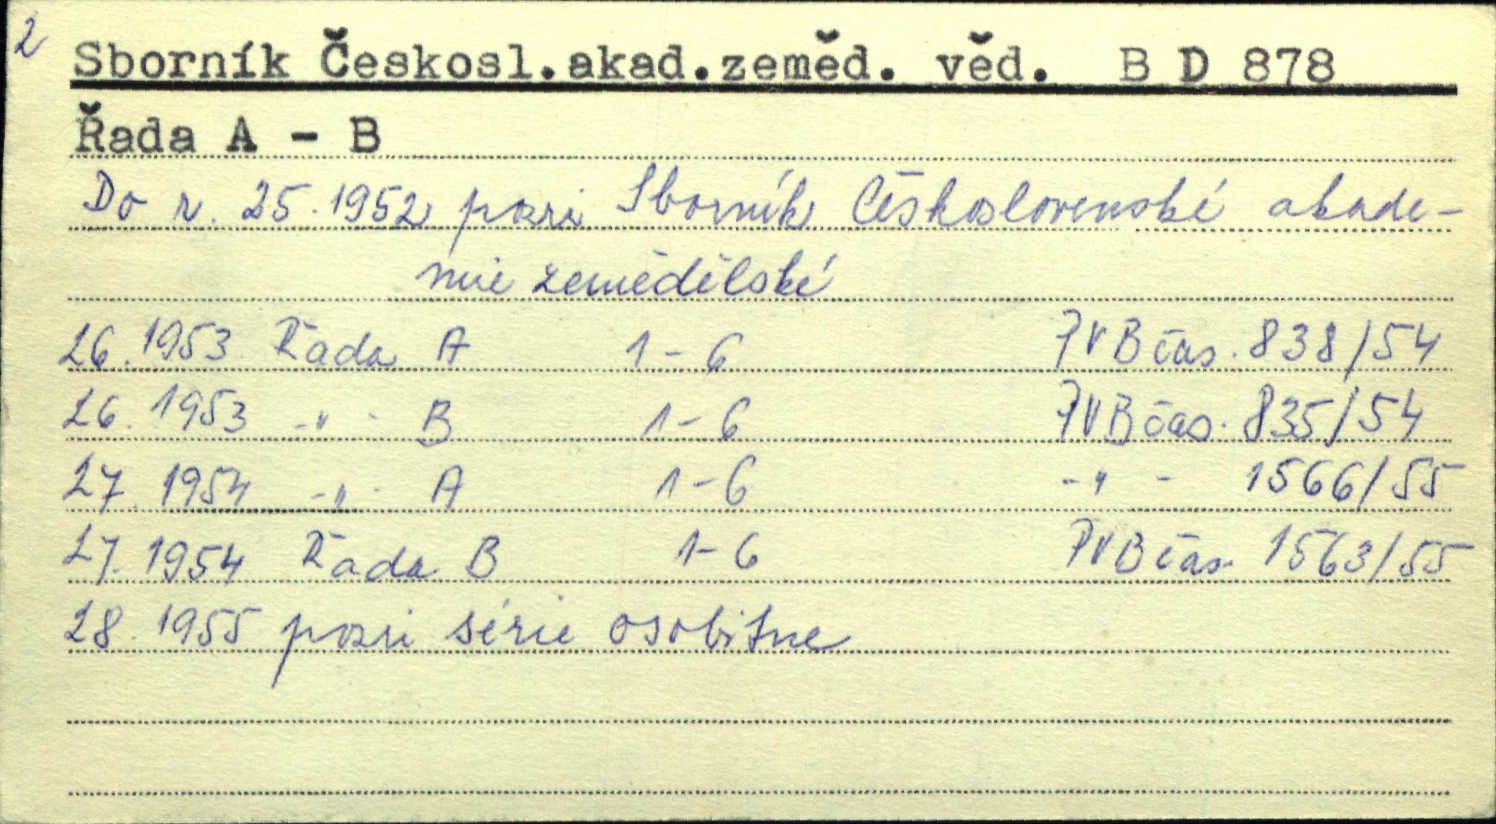 2
Sborník Českosl.akad.zeměd. věd. B D 878
Řada A - B
Do r. 25.1952 pozri Sborník Československé akade-
mie zemědělské
26.1953 Řada A 1-6 PVB čas. 838/54
26.1953 -"- B 1-6 PVB čas. 835/54
27.1954 -"- A 1-6 -"- 1566/55
27.1954 Řada B 1-6 PVB čas. 1563/55
28.1955 pozri série osobitne